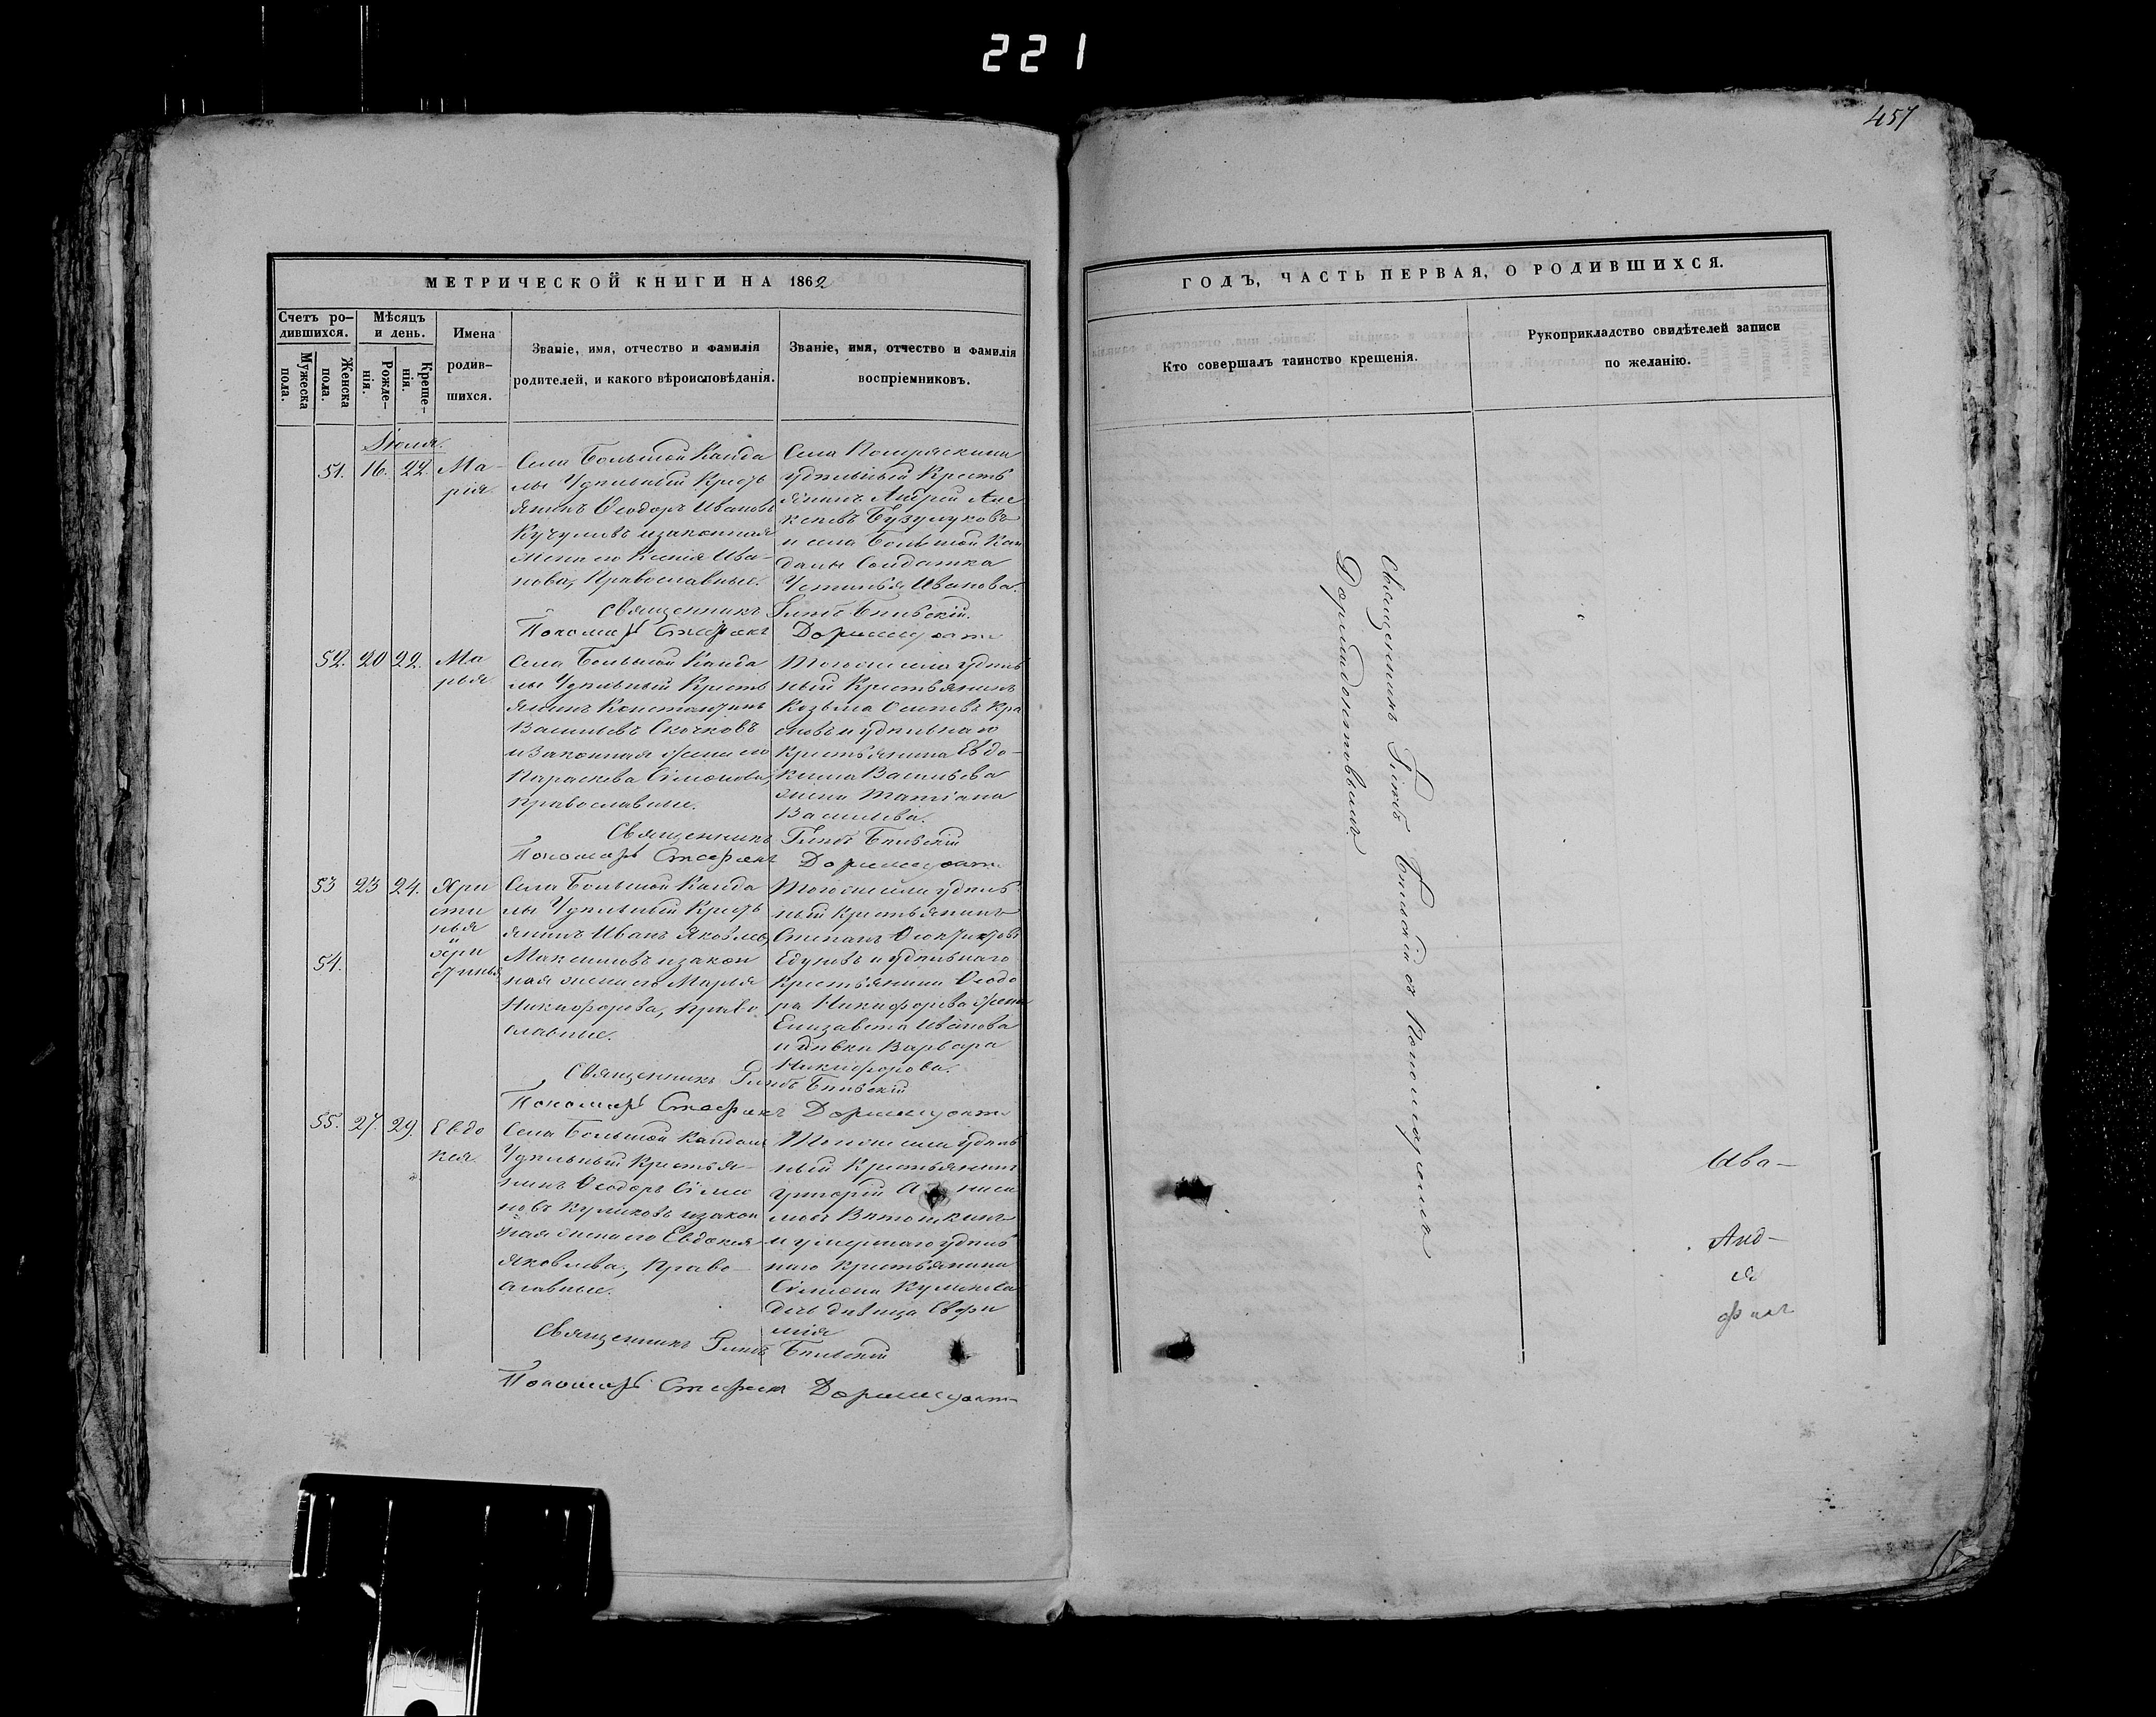 221
457
МЕТРИЧЕСКОЙ КНИГИ НА 1862
Счетъ ро-
дившихся.
Мужеска
пола.
Женска
пола.
Мѣсяцъ
и день.
Рожде-
нія.
Креще-
нія.
Имена
родив-
шихся.
Званіе, имя, отчество и фамилія
родителей, и какого вѣроисповѣданія.
Званіе, имя, отчество и фамилія
воспріемниковъ.
Іюля.
51. 16. 22. Ма-
рія.
Села Большой Канда
лы Удѣльный Кресть
янинъ Ѳеодоръ Ивановъ
Кучумовъ изаконная
жена его Ксенія Ива-
нова, Православные.
Села Помряскина
удѣльный Кресть
янинъ Андрей Але
ксѣевъ Бузулуковъ
и села Большой Кан
далы Солдатка
Устинья Иванова.
Священникъ Глѣбъ Бѣльскій.
Пономарь Стефанъ Дормидонт
52. 20 22. Ма
рья
Села Большой Канда
лы Удѣльный Кресть
янинъ Константинъ
Васильевъ Скочковъ
и Законная жена его
Параскева Сімонова,
православные.
Тогоже села удѣль
ный Крестьянинъ
Козьма Осиповъ Кра
сновъ и удѣльнаго
Крестьянина Евдо-
кима Васильева
жена Татіана
Васильева.
Священникъ Глѣбъ Бѣльскій
Пономарь Стефанъ Дормидонт
53 23 24. Хри
сти
нья
54. Хри
стинья
Села Большой Канда
лы Удѣльный Кресть
янинъ Иванъ Яковлевъ
Максимовъ изакон
ная жена его Марья
Никифорова, право
славные.
Тогоже села удѣль
ный Крестьянинъ
Степанъ Ѳеоктистовъ
Едуковъ и удѣльнаго
крестьянина Ѳеодо
ра Никифорова жена
Елизавета Иванова
и дѣвка Варвара
Никифорова.
Священникъ Глѣбъ Бѣльскій
Пономарь Стефанъ Дормидонт
55. 27. 29. Евдо
кея.
Села Большой Кандалы
Удѣльный Крестья-
нинъ Ѳеодоръ Симо
новъ Куликовъ изакон
ная жена его Евдокея
Яковлева, Право-
славные.
Тогоже села удѣль
ный Крестьянинъ
Григорій
мовъ
и умершаго удѣль
наго Крестьянина
Сімеона Куликова
дочь дѣвица Евфи
мія
Священникъ Глѣбъ Бѣльскій
Пономарь Стефанъ Дормидонт
ГОДЪ, ЧАСТЬ ПЕРВАЯ, О РОДИВШИХСЯ.
Кто совершалъ таинство крещенія.
Рукоприкладство свидѣтелей записи
по желанію.
Священникъ Глѣбъ Бѣльскій съ Пономаремъ
Дормидонтовымъ
Ива-